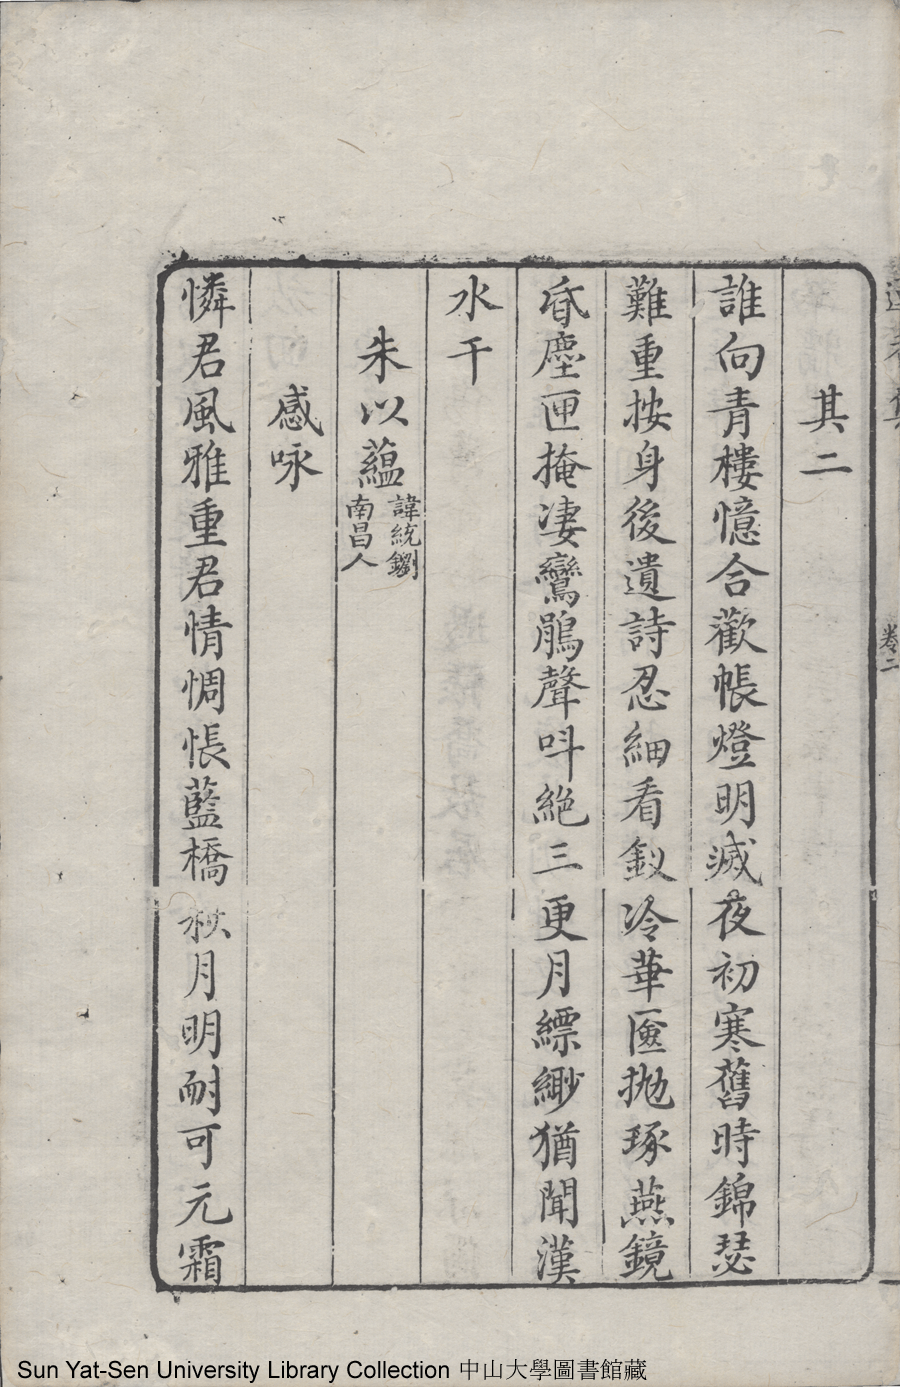 卷二
其二
誰向青樓憶合歡帳燈明滅夜初寒舊時錦瑟
難重按身後遺詩忍細看釵冷華匳拋琢燕鏡
昏塵匣掩淒鸞鵑聲呌絶三更月縹緲猶聞漢
水干
朱以蘊 諱統𨰥南昌人
感咏
憐君風雅重君情惆悵藍橋秋月明耐可元霜
Sun Yat-Sen University Library Collection 中山大學圖書館藏